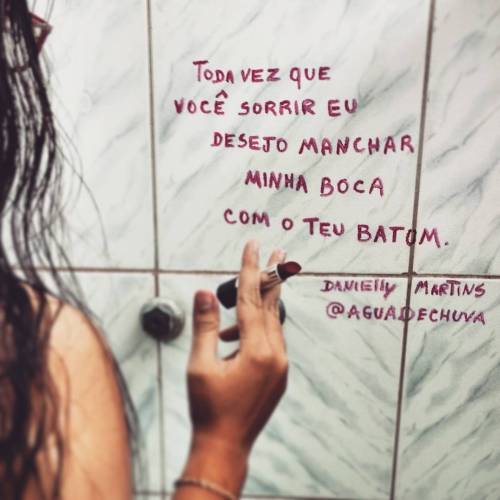 TODA VEZ QUE
VOCÊ SORRIR EU
DESEJO MANCHAR
MINHA BOCA
COM O TEU BATOM.
DANIElly MARTINS
@AGUADECHUVA